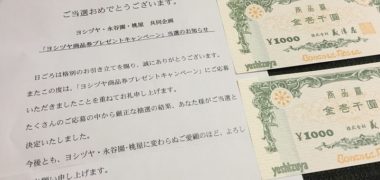 ご当選おめでとうございます。
ヨシヅヤ・永谷園・桃屋 共同企画
「ヨシヅヤ商品券プレゼントキャンペーン」当選のお知らせ
日ごろは格別のお引き立てを賜り、誠にありがとうございます。
またこの度は、「ヨシヅヤ商品券プレゼントキャンペーン」にご応募
いただきましたことを重ねてお礼申し上げます。
たくさんのご応募の中から厳正な抽選の結果、あなた様がご当選と
決定いたしました。
今後とも、ヨシヅヤ・永谷園・桃屋に変わらぬご愛顧のほど、よろし
お願い申し上げます。
商品券
金壱千円
¥1000
商品券
金壱千円
¥1000
yoshizuya